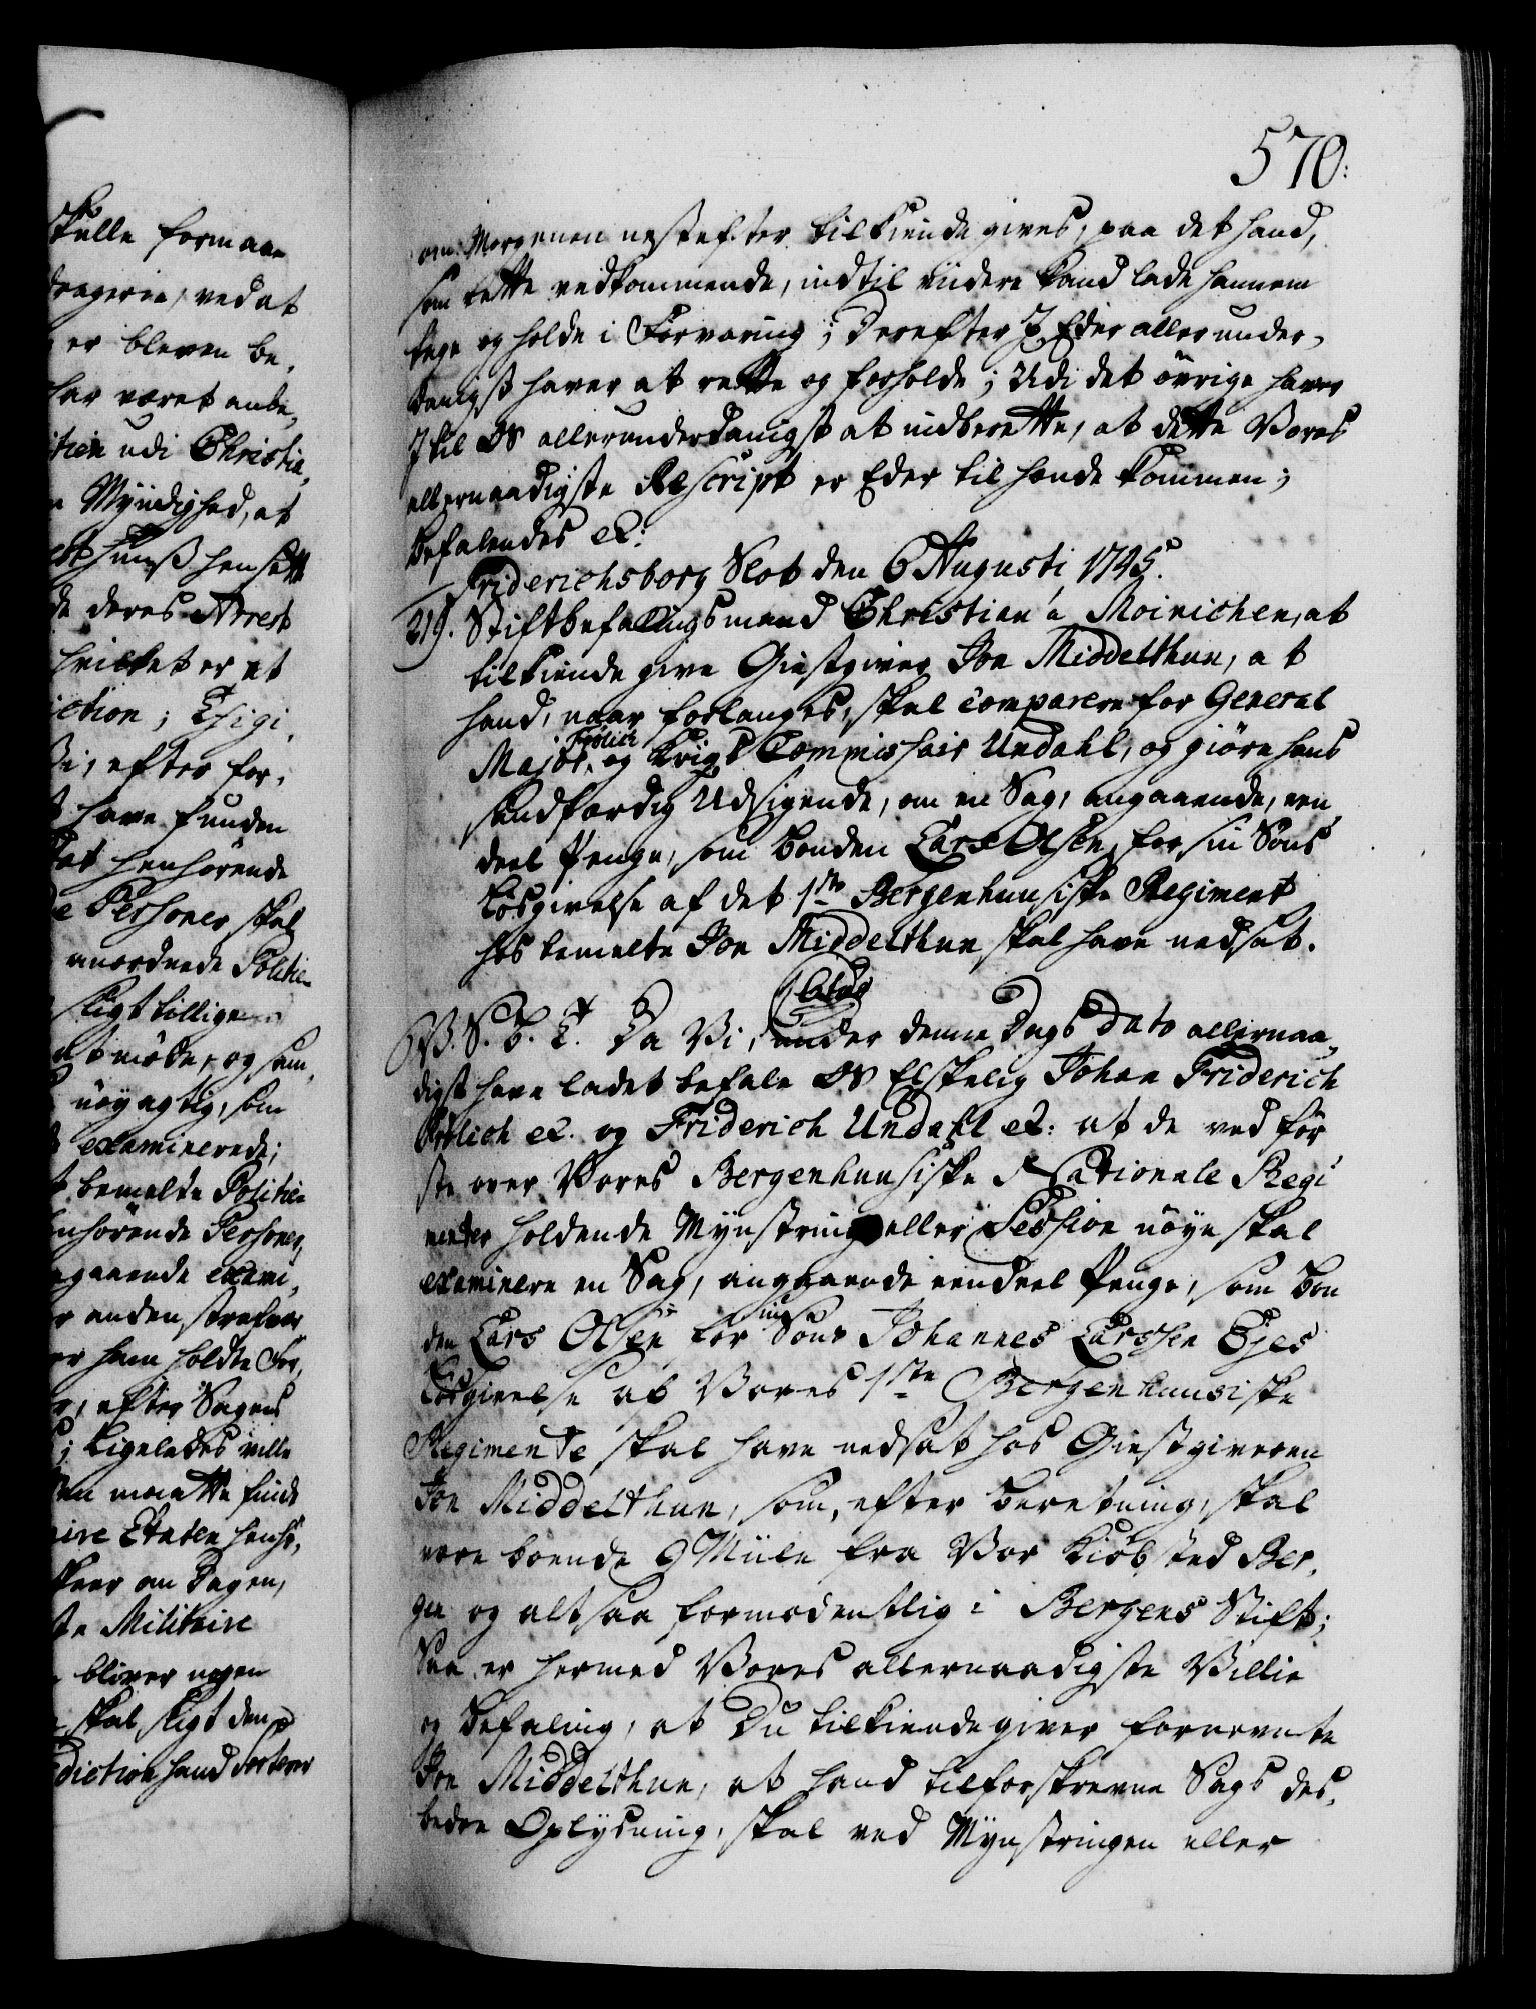 skulle formaae
dragerie, ved at
er bleven be,
har været anbe,
itien udi Christia,
Myndighed, at
huus hensette
de deres Arrest
hvilket er et
iction; Thi gi,
Vi, efter for,
have funden
Etat henhørende
Personer skal
anordnede Politie
sligt tillige
møde, og sam,
nøyagtig, som
examinerede;
bemelte Politie
enhørende Personer,
angaaende exami,
anden strafvær
ham holdte For,
, efter Sagens
; Ligeledes ville
maatte finde
aire Etaten henhø,
skeer om Dagen,
Militaire
bliver nogen
skal sligt den
diction hand sorterer
570.
om Morgenen nestefter tilkiende gives, paa det hand,
som rette vedkommende, indtil viidere kand lade hannem
tage og holde i Forvaring; Derefter I Eder allerunder,
danigst haver at rette og forholde; Udi det øvrige haver
I til Os allerunderdanigst at indberette, at dette Vores
allernaadigste Rescript er Eder til hænde kommen;
Befalendes etc:
Friderichsborg Slot den 6 Augusti 1745.
219. Stiftbefalingsmand Christian à Moinichen, at
tilkiende give Giestgiver Ion Middelthun, at
hand, naar forlanges, skal comparere for General
Major Frølich og Krigs Commissair Undahl, og giøre hans
sandfærdig Udsigende, om en Sag, angaaende, een
deel Penge, som Bonden Lars Olsen, for sin Søns
Løsgivelse af det 1ste Bergenhuusiske Regiment
hos bemelte Ion Middelthun skal have nedsat.
V. S. G. T. Da Vi, under denne Dags dato allernaa,
digst have ladet befale Os Elskelig Johan Friderich
Frølich etc. og Friderich Undahl etc: at de ved før
ste over Vores Bergenhuusiske Nationale Regi
menter holdende Mynstring eller Session nøye skal
examinere en Sag, angaaende eendeel Penge, som Bon
den Lars Olsen for sin Søns Johannes Larssen Gjes
Løsgivelse af Vores 1ste Bergenhuusiske
Regimente skal have nedsat hos Giestgiveren
Ion Middelthun, som, efter Beretning, skal
være boende 9 Miile fra Vor Kiøbsted Ber,
gen og altsaa formodentlig i Bergens Stift;
Saa er hermed Vores allernaadigste Villie
og Befaling, at Du tilkiende giver fornevnte
Ion Middelthun, at hand til forskrevne Sags des,
bedre Oplysning, skal ved Mynstringen eller